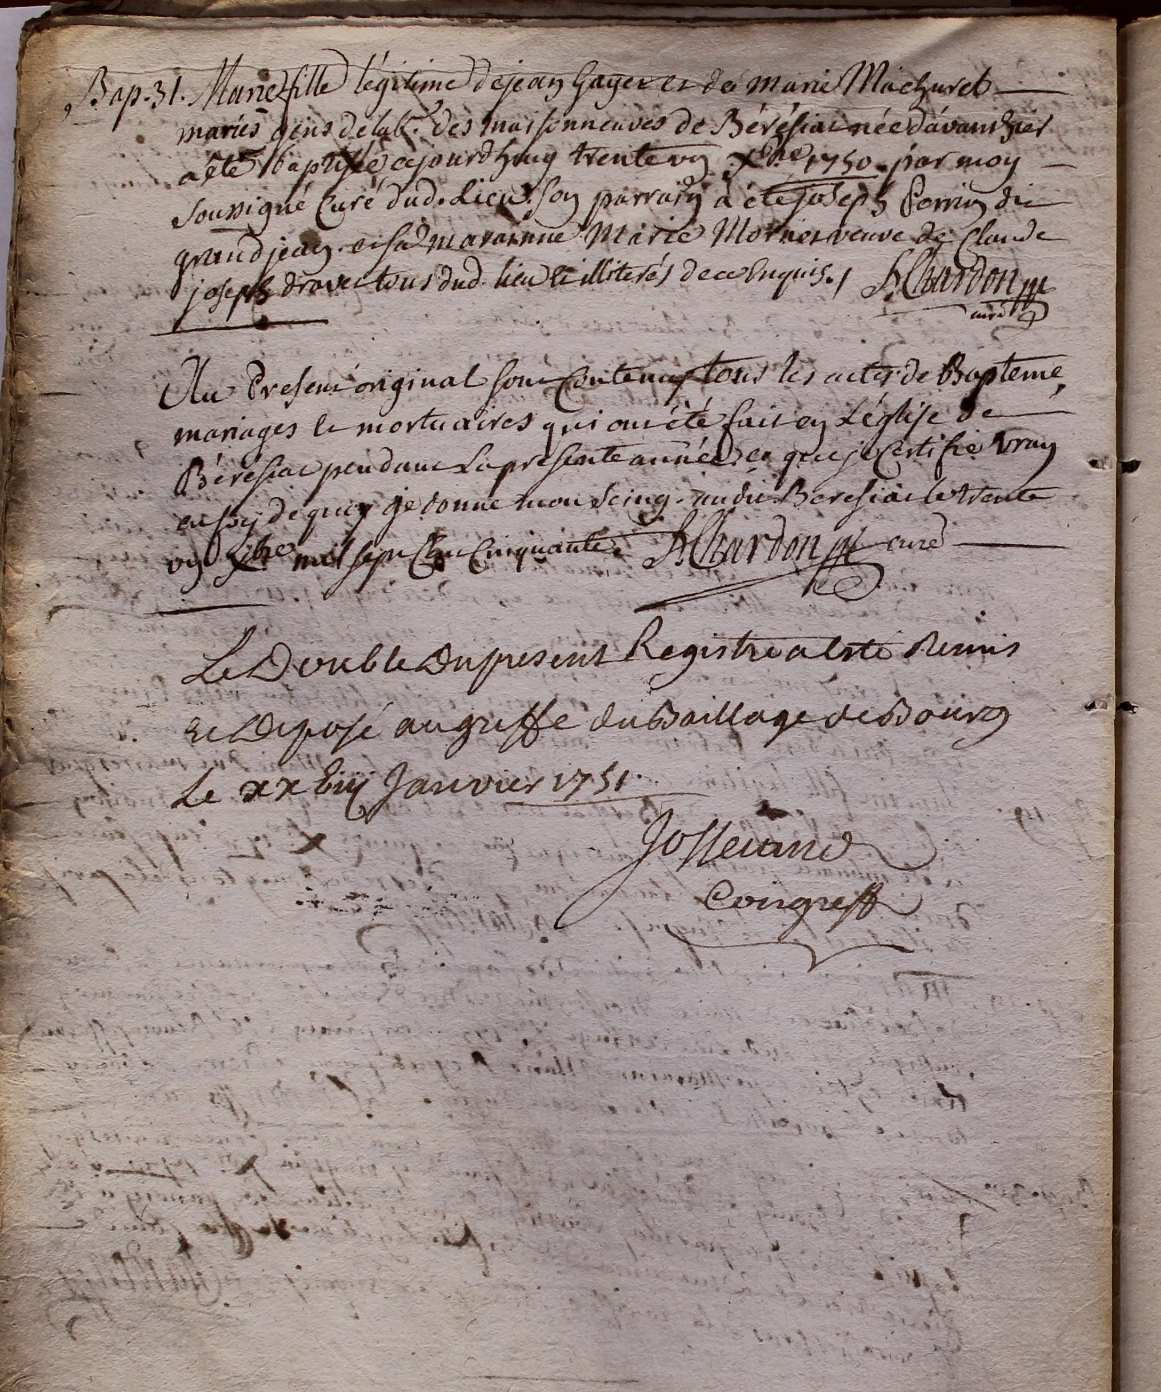 Bap. 31. Marie fille légitime de jean Gayet et de Marie Mathuret
mariés gens de lab.r des maisonneuves de Bérésiat née davant hier
a été baptisée ajourdhuy trente un Xbre 1750. par moy
soussigné Curé dud. Lieu. son parrain a été joseph Perrin dit
grand jean. et sa maranne Marie Mornet veuve de Claude
joseph dravet tous dud. lieu et illiterés de ce Enquis. / Chardon
curé
Au Présent original sont Contenus tous les actes de Bapteme,
mariages et mortuaires qui ont été fait en L'église de
Bérésiat pendant La présente année, ce que je Certifie vray
en foy de quoy je donne mon seing. audit Beresiat le trente
un Xbre mil sept Cent Cinquante. Chardon curé
Le Double Du present Registre a été Remis
et Deposé au greffe du Baillage de Bourg
Le xxviij Janvier 1751.
Josserand
Comgreff